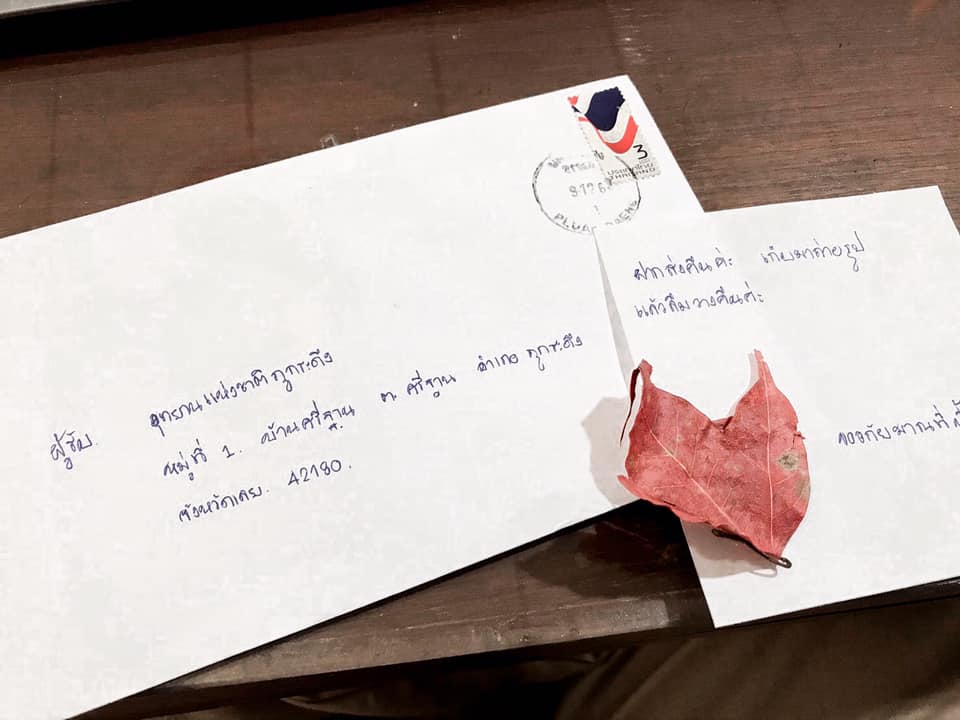 ผู้รับ. อุทยานแห่งชาติภูกระดึง
หมู่ที่ 1. บ้านศรีฐาน ต. ศรีฐาน อำเภอ ภูกระดึง
จังหวัดเลย. 42180.
3
ประเทศไทย
THAILAND
ฝากส่งคืนค่ะ เก็บมาถ่ายรูป
แล้วลืมวางคืนค่ะ
ขออภัยมาณที่นี้